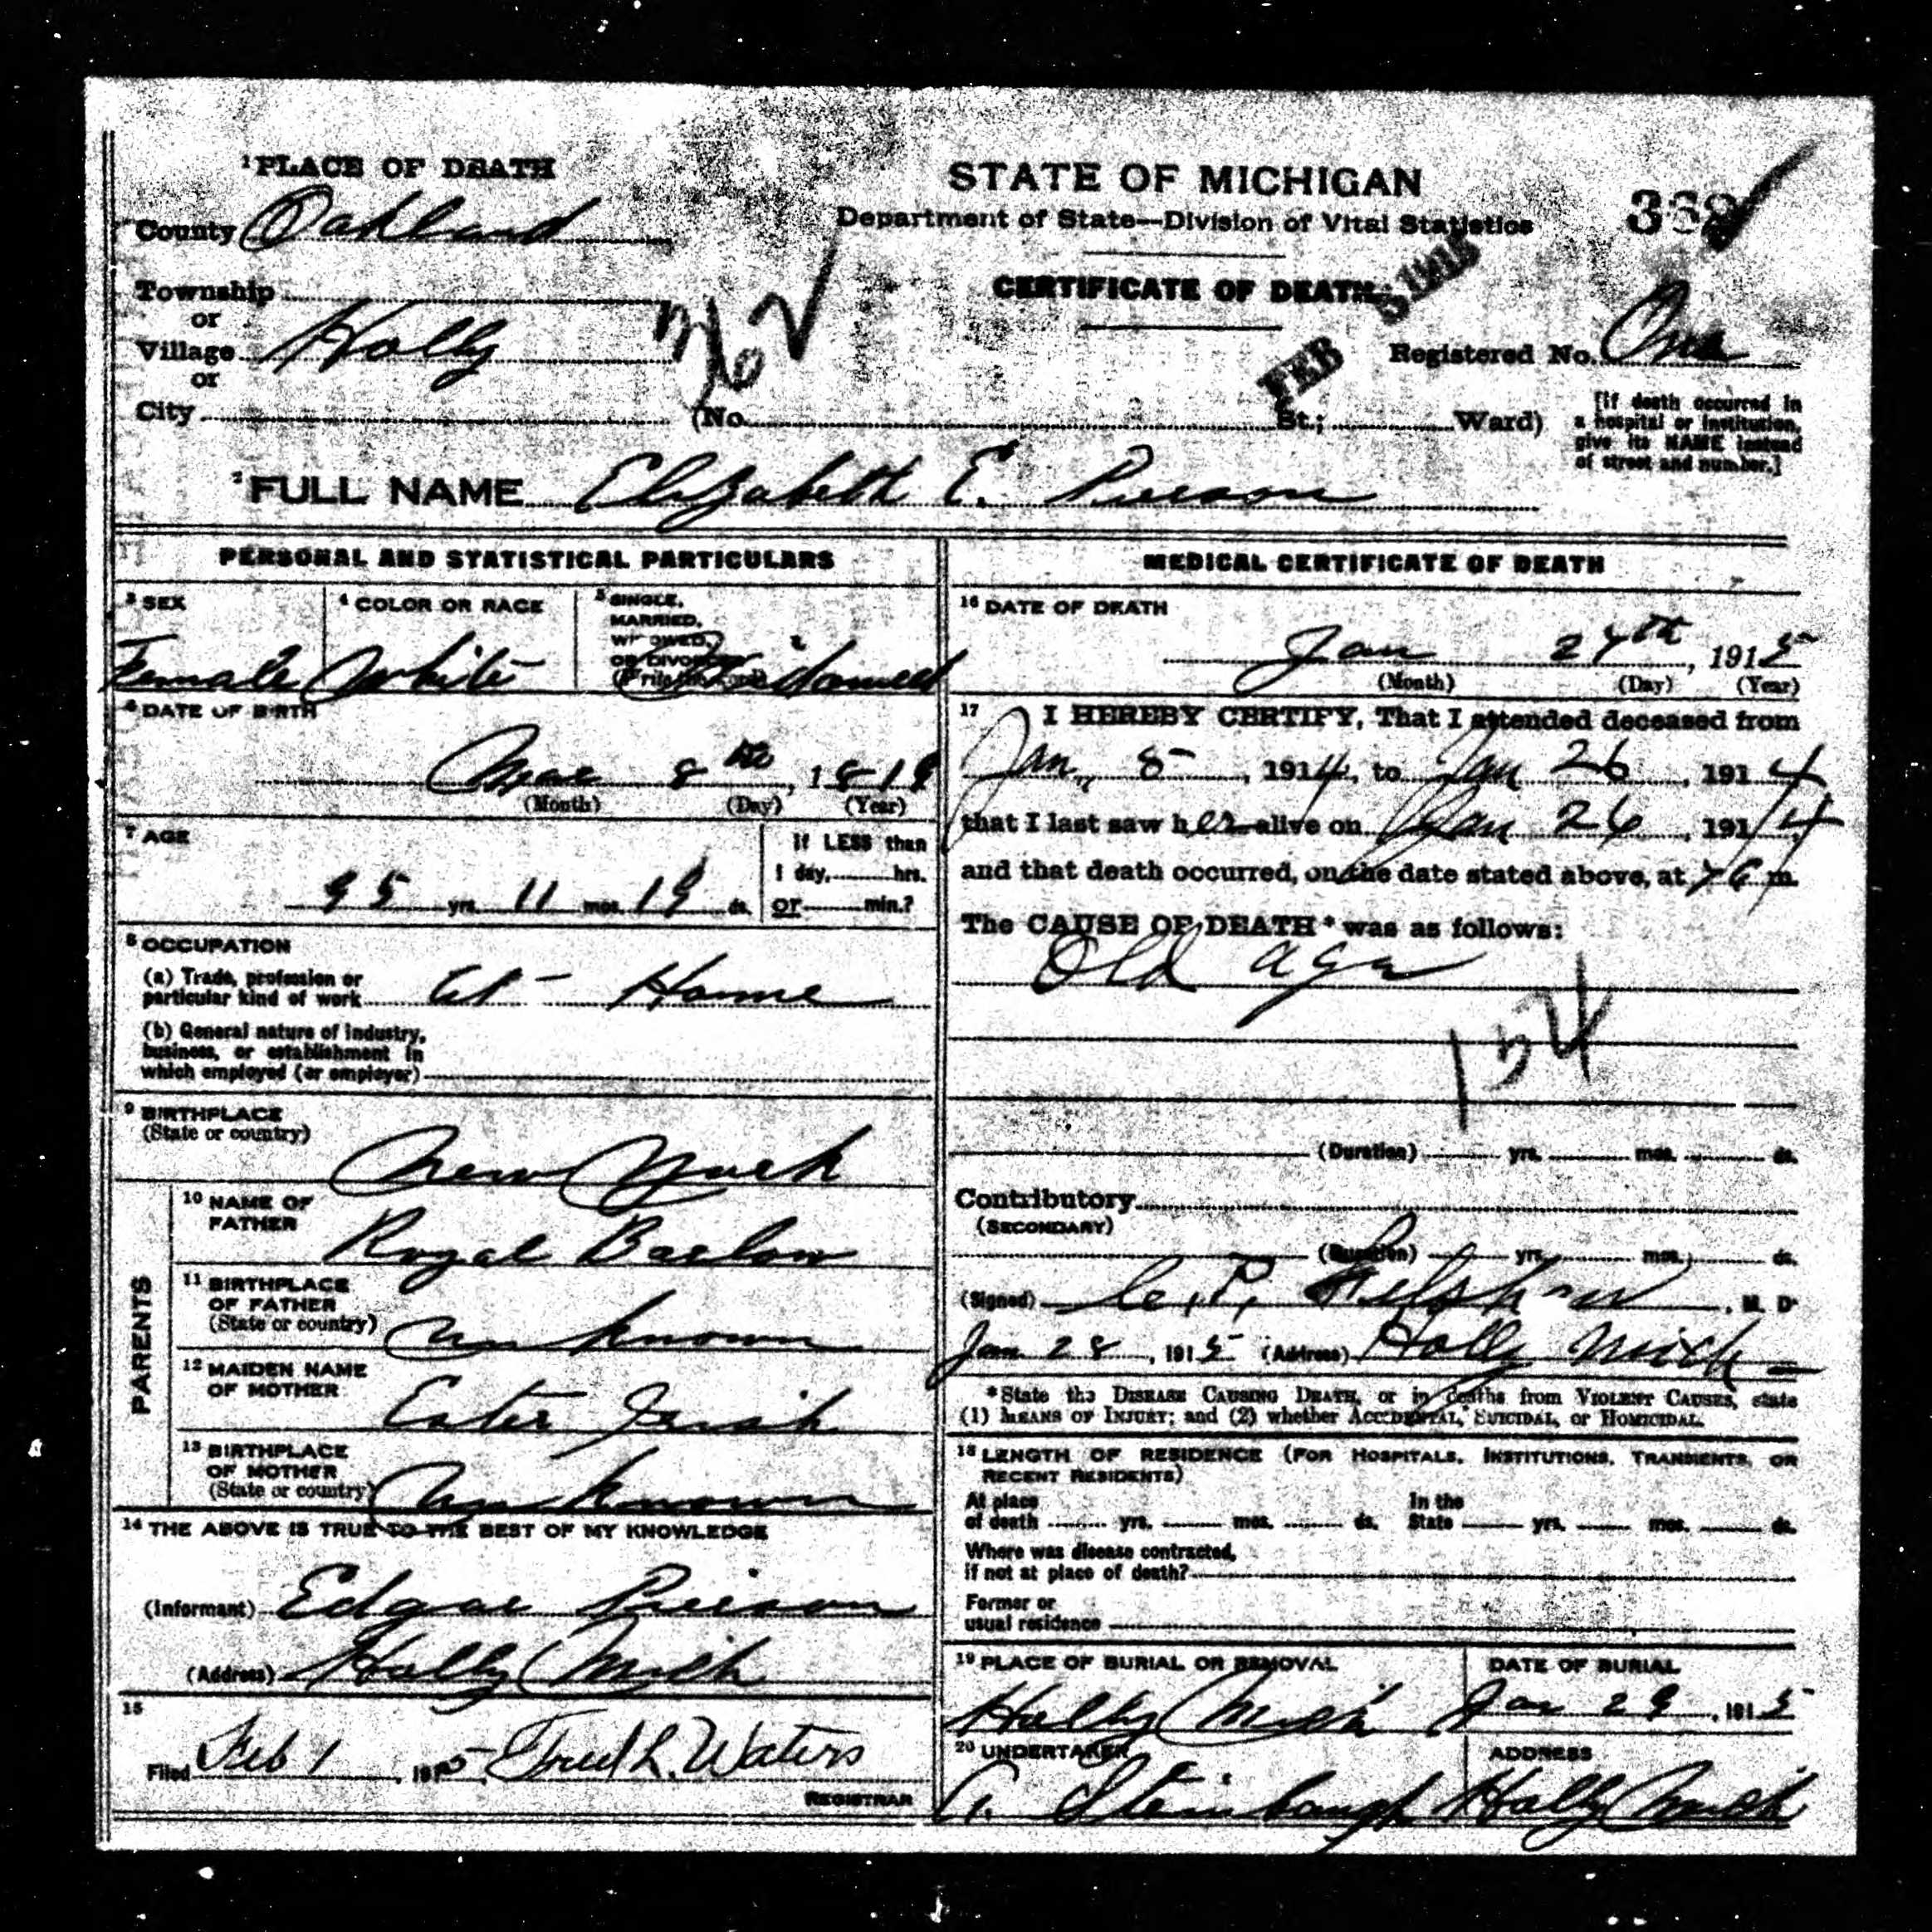 1 PLACE OF DEATH
County Oakland
Township
or
Village Holly
or
City (No. St.; Ward)
STATE OF MICHIGAN
Department of State—Division of Vital Statistics
CERTIFICATE OF DEATH
FEB 5 1915
Registered No. One
[If death occurred in
a hospital or institution,
give its NAME instead
of street and number.]
2 FULL NAME Elizabeth E. Pierson
PERSONAL AND STATISTICAL PARTICULARS
3 SEX
Female
4 COLOR OR RACE
White
5 SINGLE,
MARRIED,
WIDOWED,
OR DIVORCED
(Write the word)
Widowed
6 DATE OF BIRTH
Mar 8th, 1819
(Month) (Day) (Year)
7 AGE
95 yrs. 11 mos. 19 ds.
If LESS than
1 day, hrs.
or min.?
8 OCCUPATION
(a) Trade, profession or
particular kind of work At Home
(b) General nature of industry,
business, or establishment in
which employed (or employer)
9 BIRTHPLACE
(State or country)
New York
PARENTS
10 NAME OF
FATHER
Royal Barlow
11 BIRTHPLACE
OF FATHER
(State or country) Unknown
12 MAIDEN NAME
OF MOTHER
Ester
13 BIRTHPLACE
OF MOTHER
(State or country) Unknown
14 THE ABOVE IS TRUE TO THE BEST OF MY KNOWLEDGE
(Informant) Edgar Pierson
(Address) Holly Mich
15
Filed Feb 1, 1915 Fred L. Waters
REGISTRAR
MEDICAL CERTIFICATE OF DEATH
16 DATE OF DEATH
Jan 27th, 1915
(Month) (Day) (Year)
17 I HEREBY CERTIFY, That I attended deceased from
Jan. 8, 1914, to Jan 26, 1914
that I last saw her alive on Jan 26, 1914
and that death occurred, on the date stated above, at m.
The CAUSE OF DEATH* was as follows:
Old age
154
(Duration) yrs. mos. ds.
Contributory
(SECONDARY)
(Duration) yrs. mos. ds.
(Signed) , M. D.
Jan 28, 1915 (Address) Holly Mich
*State the DISEASE CAUSING DEATH, or in deaths from VIOLENT CAUSES, state
(1) MEANS OF INJURY; and (2) whether ACCIDENTAL, SUICIDAL, or HOMICIDAL.
18 LENGTH OF RESIDENCE (FOR HOSPITALS, INSTITUTIONS, TRANSIENTS, OR
RECENT RESIDENTS)
At place
of death yrs. mos. ds.
In the
State yrs. mos. ds.
Where was disease contracted,
if not at place of death?
Former or
usual residence
19 PLACE OF BURIAL OR REMOVAL
Holly Mich
DATE OF BURIAL
Jan 29, 1915
20 UNDERTAKER
A. Steinbaugh
ADDRESS
Holly Mich